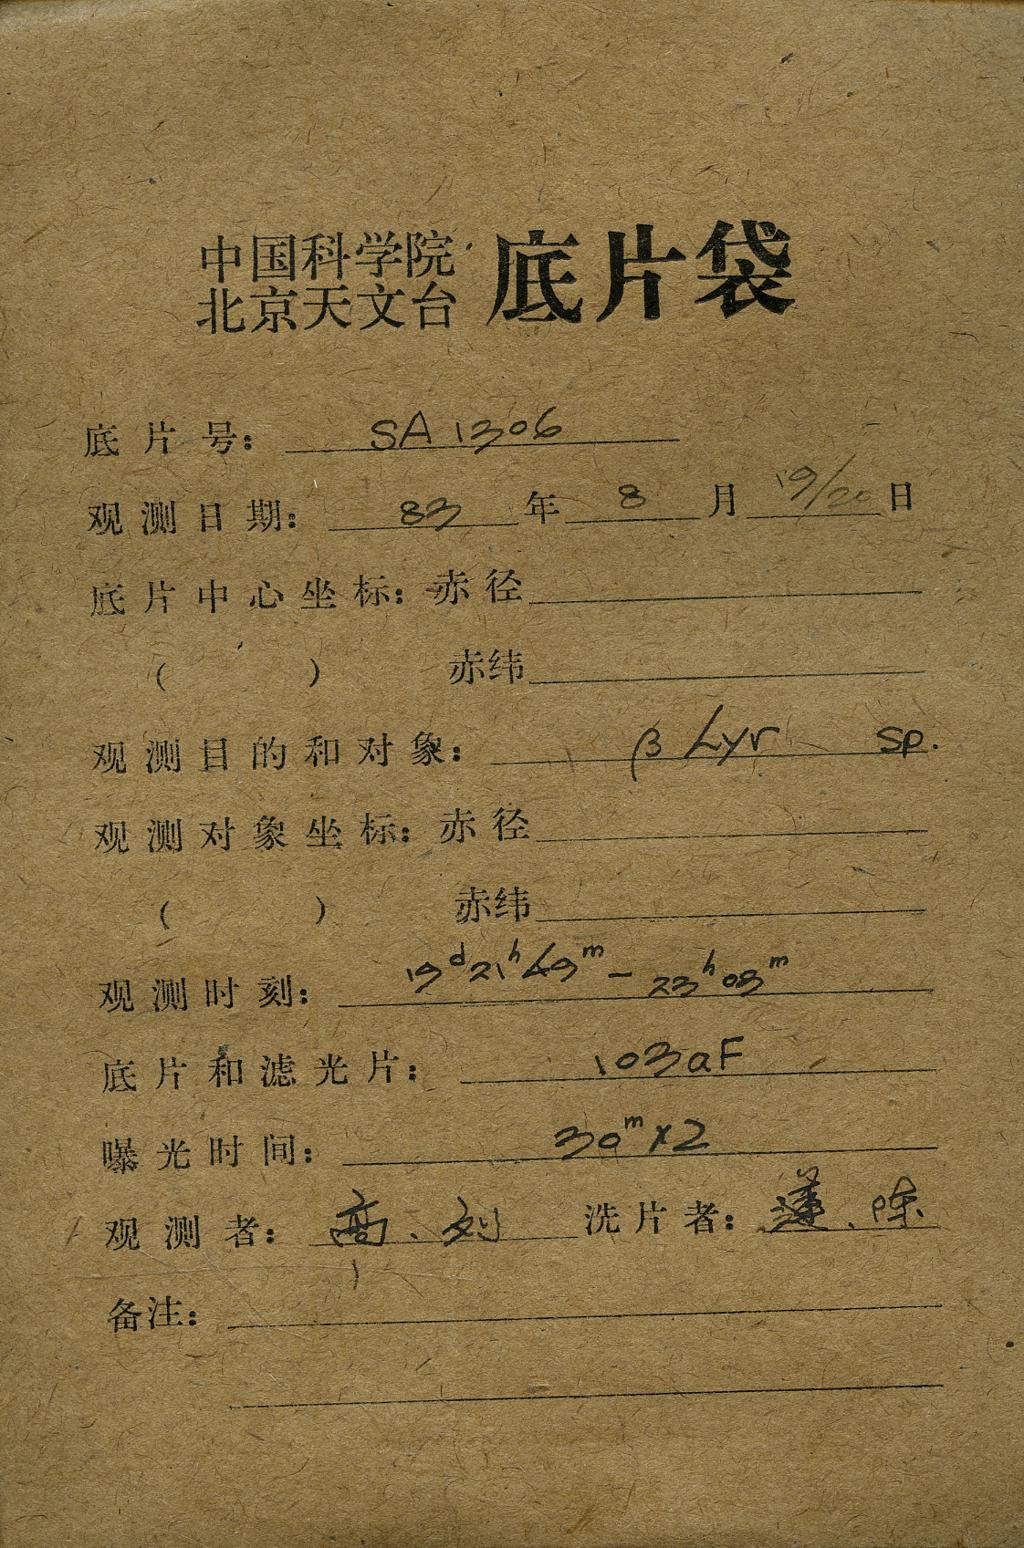 中国科学院 底片袋
北京天文台
底片号: SA 1306
观测日期: 83 年 8 月 19/20 日
底片中心坐标: 赤径
( ) 赤纬
观测目的和对象: β Lyr sp.
观测对象坐标: 赤径
( ) 赤纬
观测时刻: 19d21h49m - 23h03m
底片和滤光片: 103aF
曝光时间: 30m×2
观测者: 高、刘 洗片者: 、陈
备注: